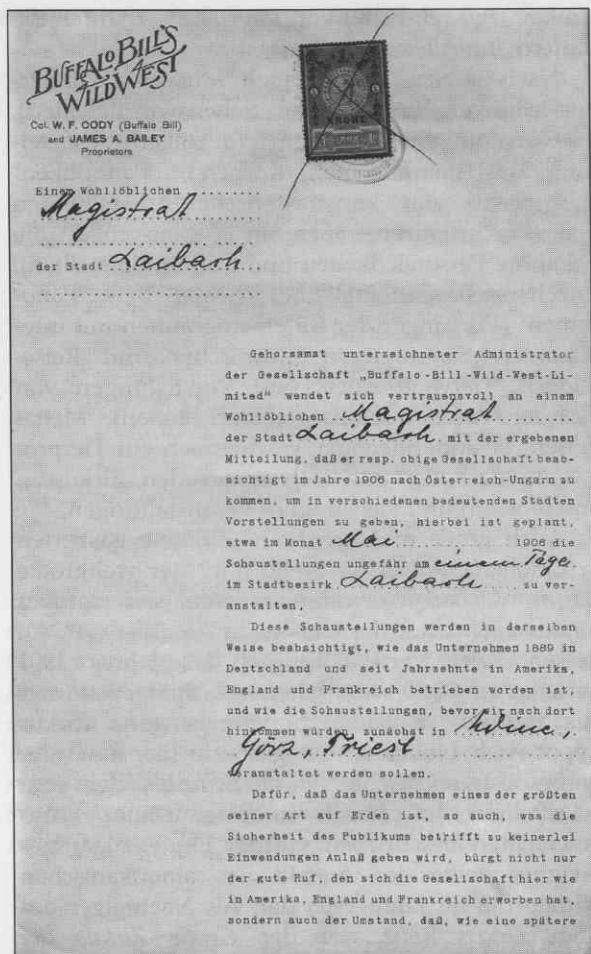 BUFFALO BILL'S
WILD WEST
Col. W. F. CODY (Buffalo Bill)
and JAMES A. BAILEY
Proprietors
KRONE
Einem Wohllöblichen ........
Magistrat
der Stadt Laibach
Gehorsamst unterzeichneter Administrator
der Gesellschaft „Buffalo-Bill-Wild-West-Li-
mited" wendet sich vertrauensvoll an einem
Wohllöblichen Magistrat
der Stadt Laibach mit der ergebenen
Mitteilung, daß er resp. obige Gesellschaft beab-
sichtigt im Jahre 1906 nach Österreich-Ungarn zu
kommen, um in verschiedenen bedeutenden Städten
Vorstellungen zu geben, hierbei ist geplant,
etwa im Monat Mai 1906 die
Schaustellungen ungefähr am einem Tage
im Stadtbezirk Laibach zu ver-
anstalten.
Diese Schaustellungen werden in derselben
Weise beabsichtigt, wie das Unternehmen 1889 in
Deutschland und seit Jahrzehnte in Amerika,
England und Frankreich betrieben worden ist,
und wie die Schaustellungen, bevor wir nach dort
hinkommen würden, zunächst in Udine,
Görz, Triest
veranstaltet werden sollen.
Dafür, daß das Unternehmen eines der größten
seiner Art auf Erden ist, so auch, was die
Sicherheit des Publikums betrifft zu keinerlei
Einwendungen Anlaß geben wird, bürgt nicht nur
der gute Ruf, den sich die Gesellschaft hier wie
in Amerika, England und Frankreich erworben hat,
sondern auch der Umstand, daß, wie eine spätere